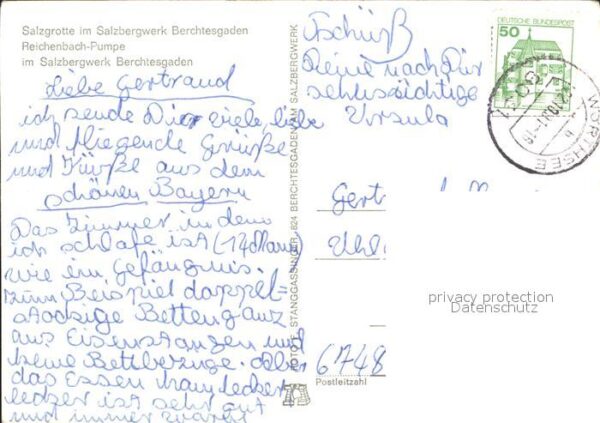 Salzgrotte im Salzbergwerk Berchtesgaden
Reichenbach-Pumpe
im Salzbergwerk Berchtesgaden
Liebe Gertraud
ich sende Dir viele liebe
und fliegende Grüße
und Küsse aus dem
schönen Bayern
Das Zimmer in dem
ich schlafe ist (14 Mann)
wie ein Gefängnis.
zum Beispiel doppel=
stockige Betten ganz
aus Eisenstangen und
keine Bettbezüge. Aber
das Essen
lecker ist sehr gut
und immer warm
Tschüß
Deine nach Dir
sehnsüchtige
Ursula
FOTO L. STANGGASSINGER, 824 BERCHTESGADEN AM SALZBERGWERK
DEUTSCHE BUNDESPOST
50
8031
WÖRTHSEE
Gert
Uhl
6748
Postleitzahl
privacy protection
Datenschutz